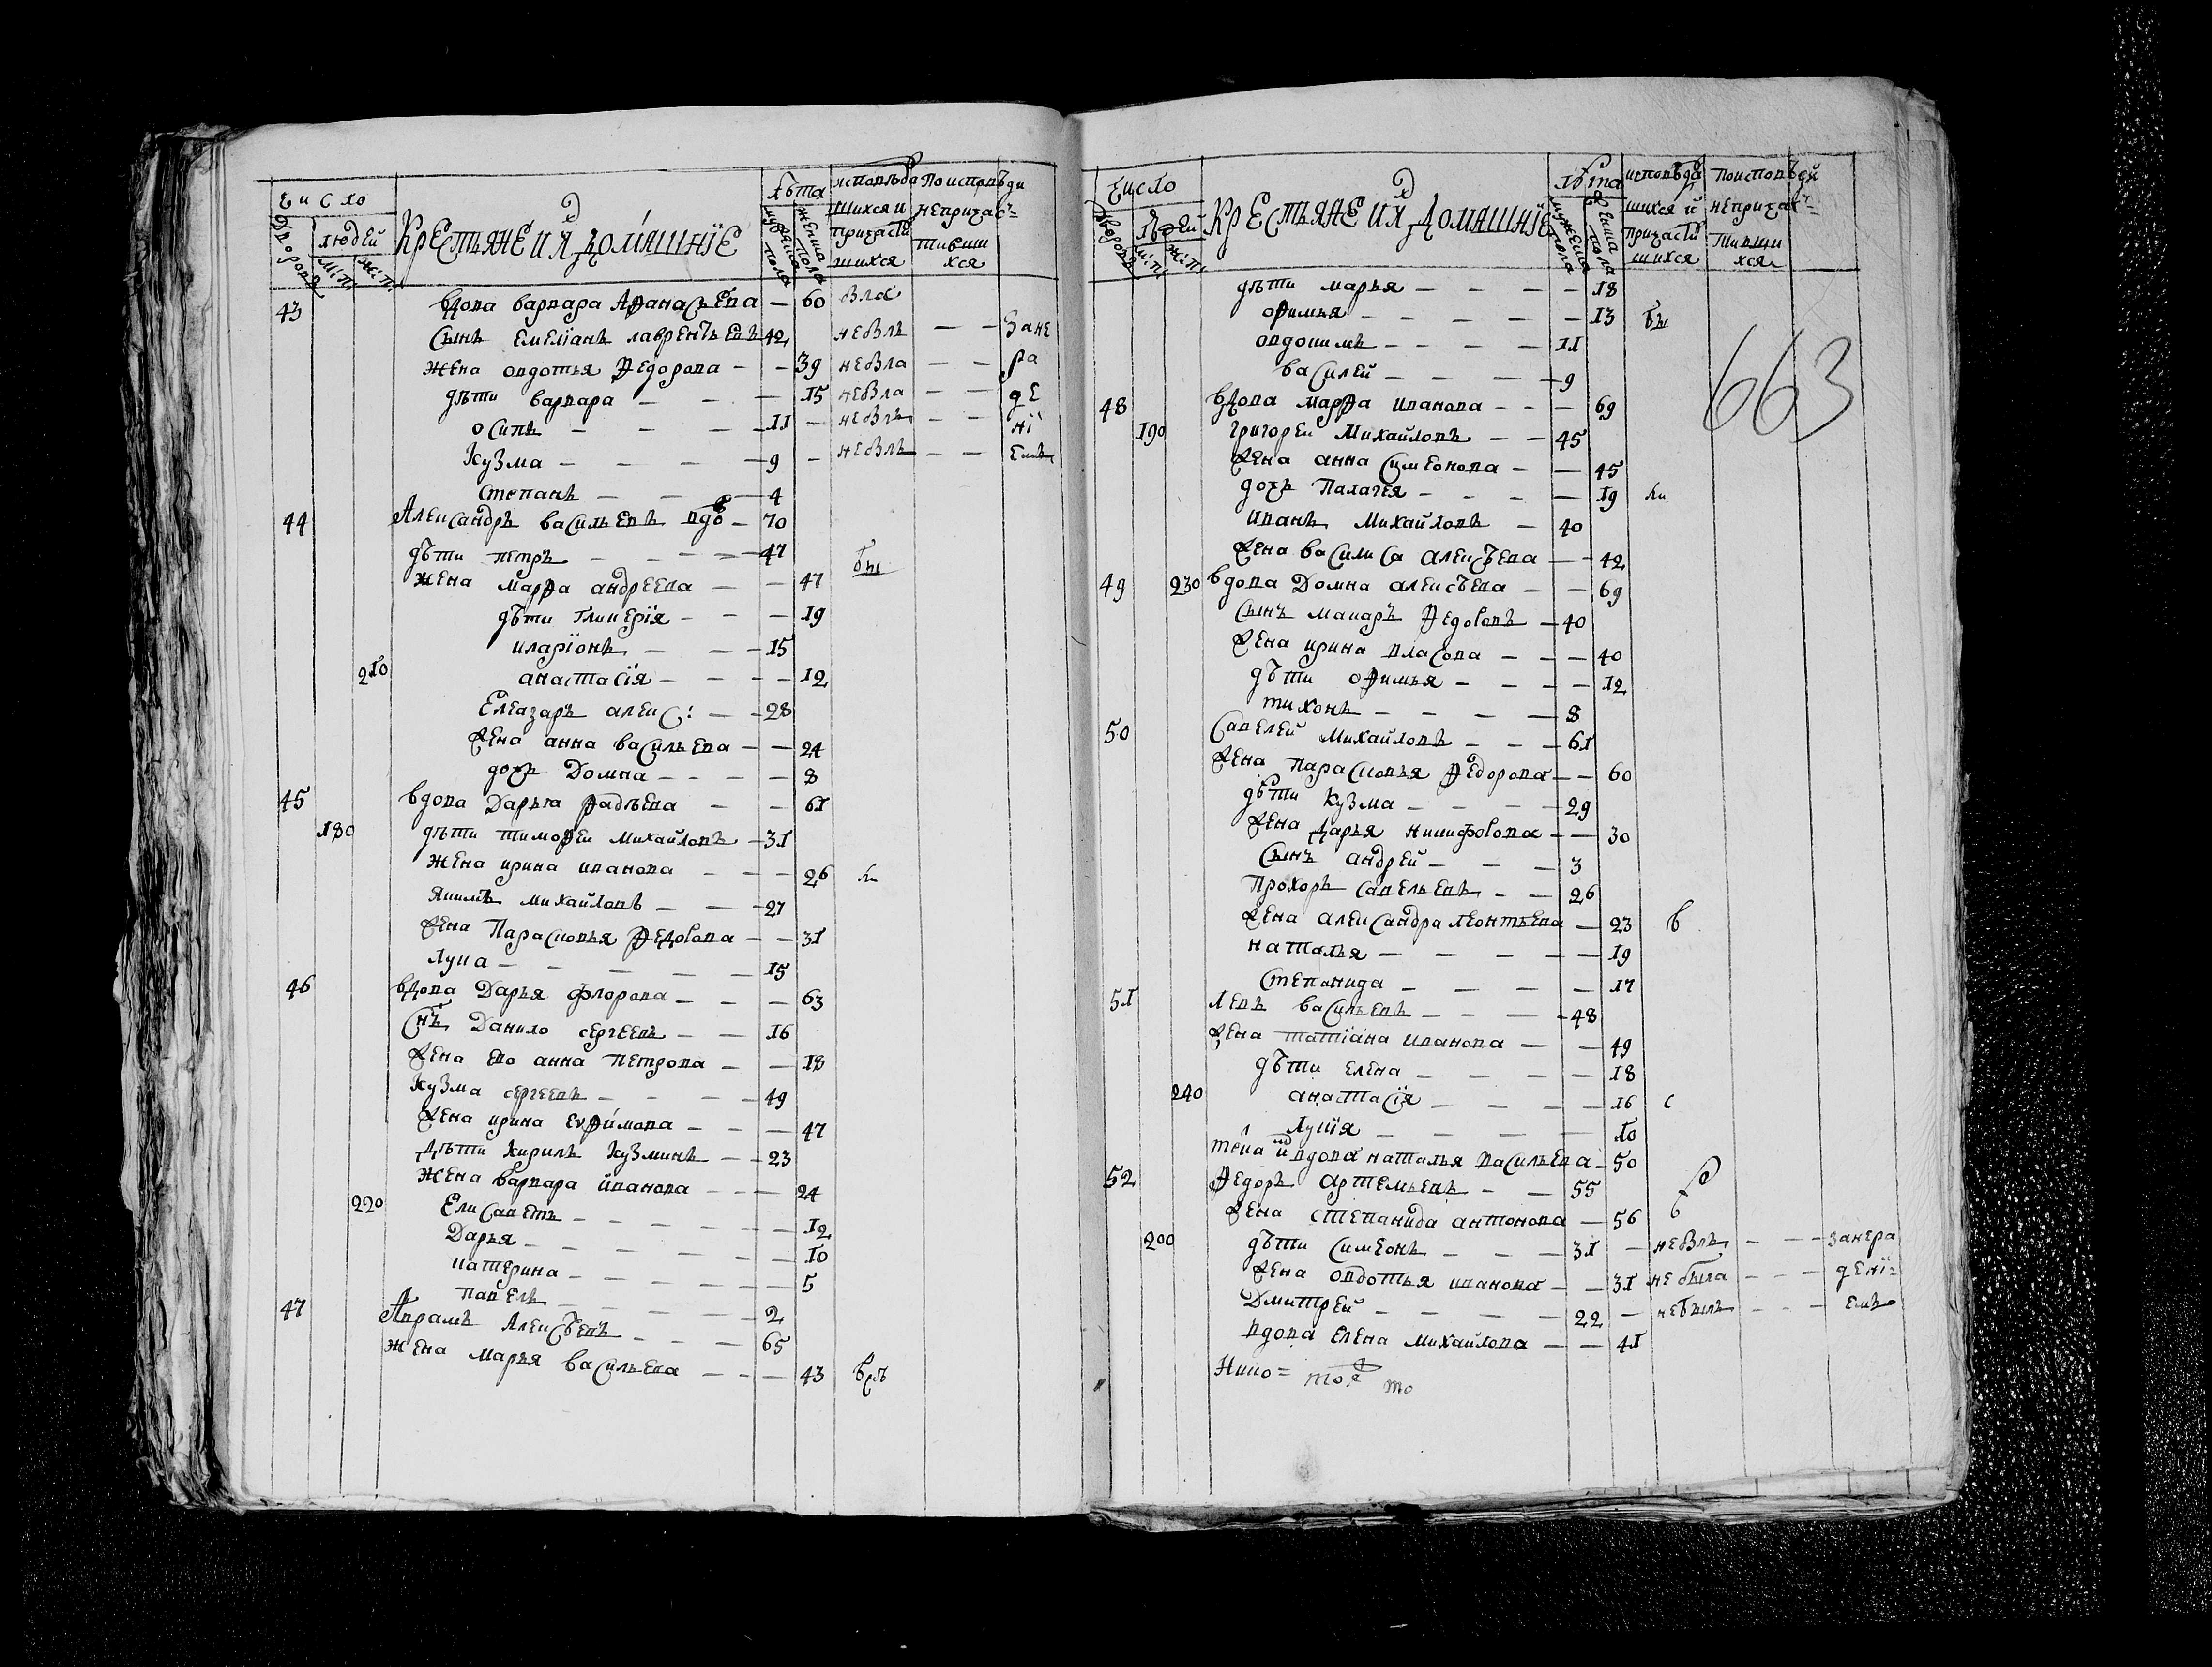 Число
Дворовъ
людей
м: п:
ж: п:
Крестьяне и ихъ домашнїе
лѣта
мужеска пола
женска пола
исповѣдавшихся и причастившихся
по исповѣди не причастившихся
43 вдова варвара Афанасьева — 60 была
сынъ Емелїанъ лаврентьевъ 42 небылъ — — зане
жена овдотья Федорова — — 39 небыла — — ра
дѣти варвара — — — 15 небыла — — де
осипъ — — — 11 — небылъ — — нї
Кузма — — — 9 — небылъ — — емъ
степанъ — — — 4
44 Александръ васильевъ вдовъ — 70
дѣти петръ — — — 47
жена марфа андреева — — 47 бы
дѣти Гликерїя — — — 19
иларїонъ — — — 15
210 анастасїя — — — — 12
Елеазаръ алекс: — — 28
жена анна васильева — — 24
дочь Домна — — — — 8
45 вдова Дарья фадѣева — — 61
180 дѣти тимофей Михайловъ — 31
жена ирина иванова — — — 26 ли
якимъ михайловъ — — — 27
жена Парасковья Федорова — — 31
лука — — — — — 15
46 вдова Дарья флорова — — — 63
снъ Данило сергеевъ — — 16
жена его анна петрова — — 18
Кузма сергеевъ — — — — 49
жена ирина ефимова — — — 47
дѣти Кирилъ Кузминъ — — 23
жена варвара иванова — — — 24
220 Елисаветъ — — — — — 12
Дарья — — — — — 10
катерина — — — — — 5
павелъ — — — — 2
47 Аврамъ Алексѣевъ — — — 65
жена марья васильева — — — 43 всѣ
число
дворовъ
людей
м: п:
ж: п:
Крестьяне и ихъ домашнїе
лѣта
мужеска пола
женска пола
исповѣдавшихся и причастившихся
по исповѣди не причастившихся
663
дѣти марья — — — — 18
офимья — — — — — 13 бы
овдокимъ — — — — 11
василей — — — — 9
48 вдова марфа иванова — — — 69
190 григорей Михайловъ — — 45
жена анна симеонова — — 45
дочь Палагея — — — — 19 ли
иванъ Михайловъ — 40
жена василиса алексѣева — — 42
49 230 вдова Домна алексѣева — — 69
сынъ макаръ Федоровъ — 40
жена ирина власова — — — 40
дѣти офимья — — — — 12
тихонъ — — — — 8
50 савелей михайловъ — — — 61
жена парасковья Федорова — — 60
дѣти Кузма — — — — 29
жена дарья никифорова — — 30
сынъ андрей — — — 3
Прохоръ савельевъ — — 26
жена александра леонтьева — 23 в
наталья — — — — — 19
степанида — — — — 17
51 левъ васильевъ — — — — 48
жена татїана иванова — — 49
дѣти елена — — — — 18
240 анастасїя — — — — 16 с
лукїя — — — — 10
вдова наталья васильева — 50
52 Федоръ артемьевъ — — 55
жена степанида антонова — 56
200 дѣти симеонъ — — — 31 — небылъ — — — занера
жена овдотья иванова — — 31 не была — — — денї=
Дмитрей — — — — 22 — небылъ — — — емъ
вдова елена михайлова — — 41